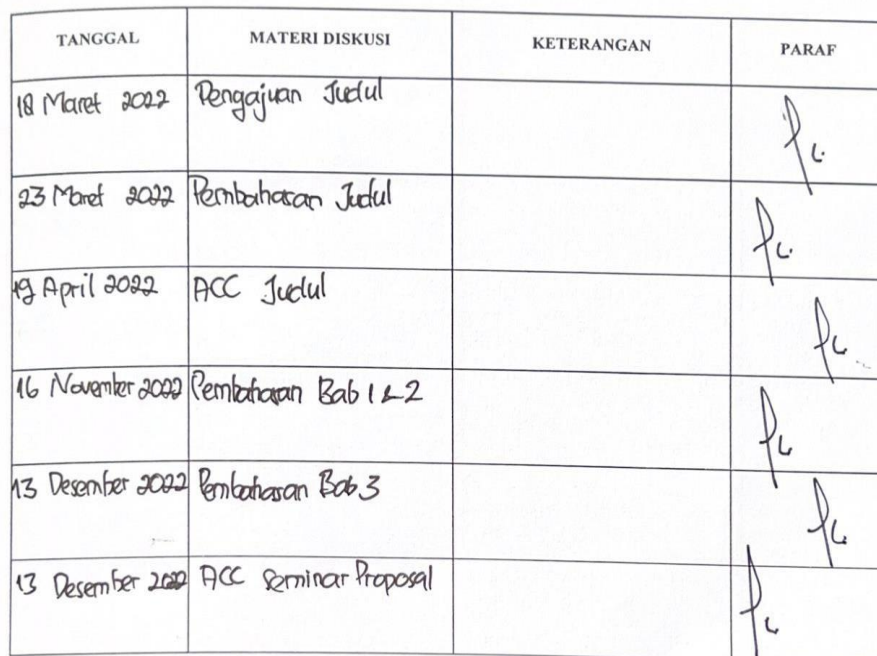 TANGGAL MATERI DISKUSI KETERANGAN PARAF
18 Maret 2022 Pengajuan Judul
23 Maret 2022 Pembahasan Judul
19 April 2022 ACC Judul
16 November 2022 Pembahasan Bab 1 & 2
13 Desember 2022 Pembahasan Bab 3
13 Desember 2022 ACC Seminar Proposal